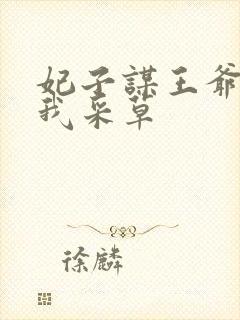 妃子謀王爺
我采草
徐麟